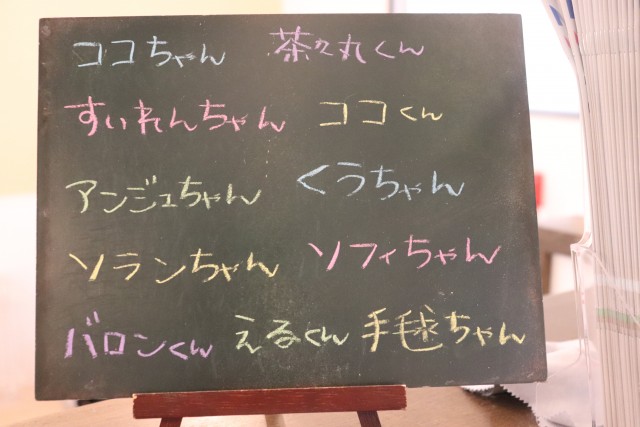 ココちゃん 茶々丸くん
すいれんちゃん ココくん
アンジュちゃん くうちゃん
ソランちゃん ソフィちゃん
バロンくん えるくん 手毬ちゃん